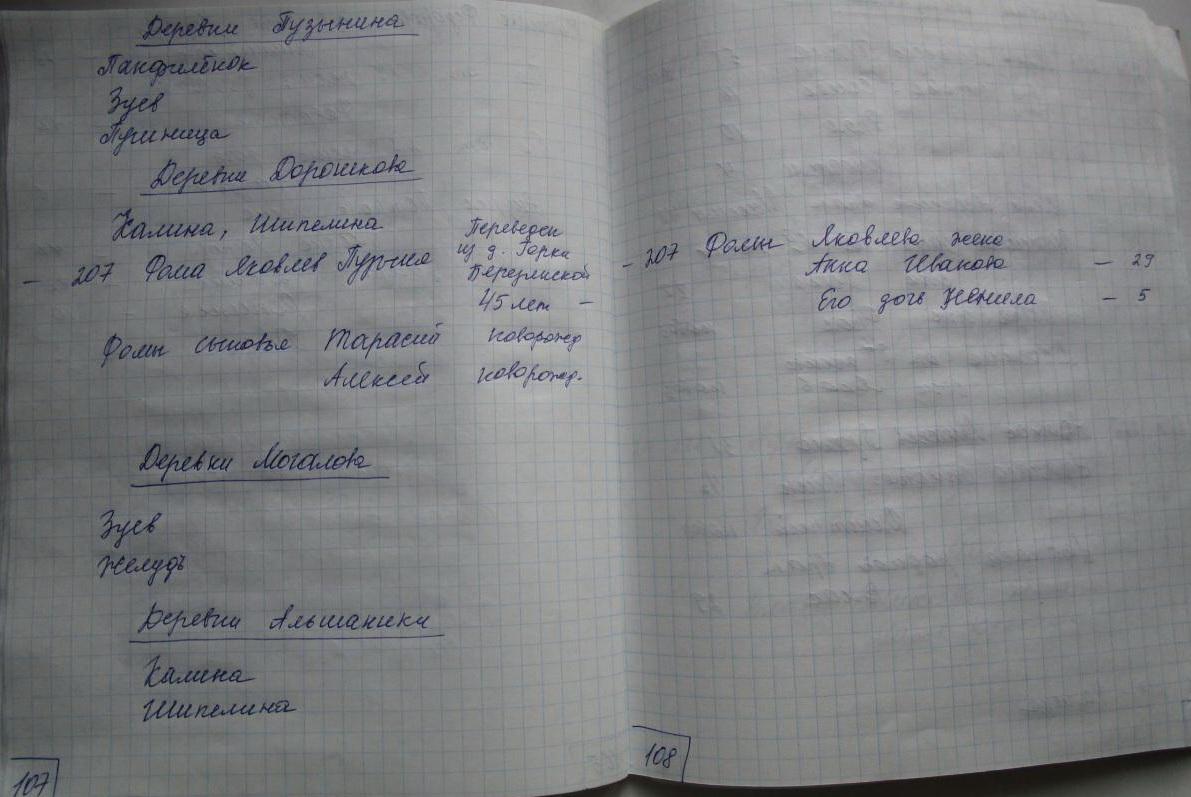 Деревни Пузынина
Панфилёнок
Зуев
Пугиница
Деревни Дорошкова
Калина, Шипелина
Переведен
из д. Горки
— 207 Фома Яковлев Пузыно
45 лет —
Фомы сыновья Тарасий новорожд
Алексей новорожд.
Деревни Могалова
Зуев
Желудь
Деревни Альшаники
Калина
Шипелина
107
— 207 Фомы Яковлева жена
Анна Иванова — 29
Его дочь Ненила — 5
108